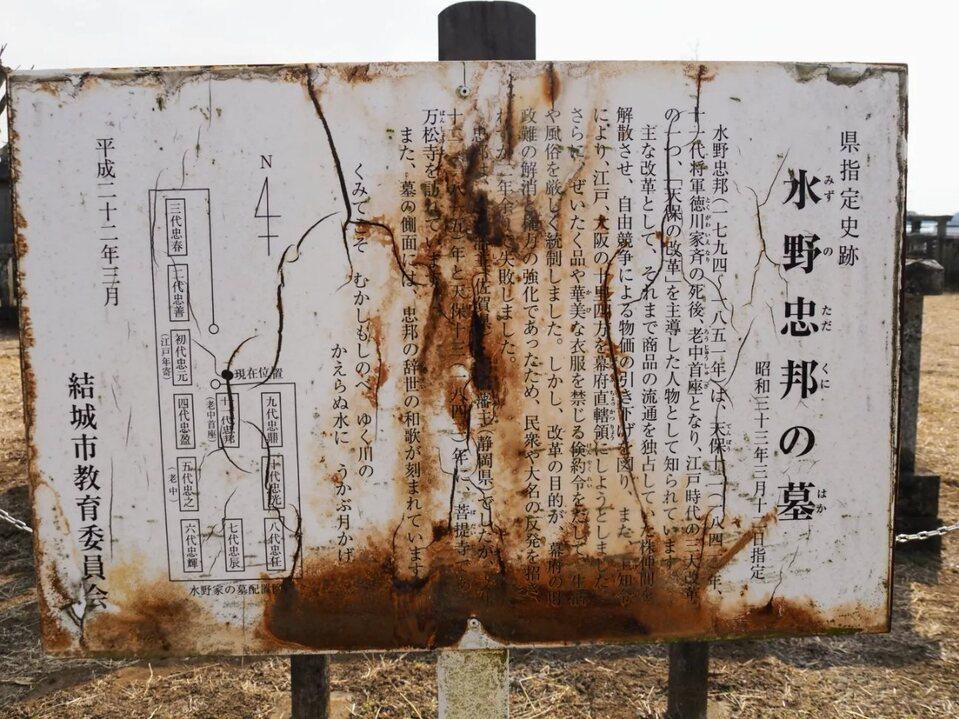 県指定史跡
水野忠邦の墓
みずのただくにはか
昭和三十三年三月十二日指定
水野忠邦(一七九四〜一八五一年)は、天保十二(一八四一)年、
十一代将軍徳川家斉の死後、老中首座となり、江戸時代の三大改革
の一つ、「天保の改革」を主導した人物として知られています。
主な改革として、それまで商品の流通を独占していた株仲間を
解散させ、自由競争による物価の引き下げを図り、また、上知令
により、江戸、大阪の十里四方を幕府直轄領にしようとしました。
さらに、ぜいたく品や華美な衣服を禁じる倹約令をだして、生活
や風俗を厳しく統制しました。しかし、改革の目的が、幕府の財
政難の解消と権力の強化であったため、民衆や大名の反発を招き
二年余で失敗しました。
忠邦は、佐賀県 藩主 静岡県)でしたが
十二 五)年と天保十三(一八四二)年に、菩提寺である
万松寺を訪れています。
また、墓の側面には、忠邦の辞世の和歌が刻まれています。
くみてこそ むかしもしのべ ゆく川の
かえらぬ水に うかぶ月かげ
N
三代忠春
二代忠善
初代忠元
(江戸年寄)
現在位置
十一代忠邦
(老中首座)
九代忠鼎
四代忠盈
十代忠光
五代忠之
(老中)
八代忠任
七代忠辰
六代忠輝
水野家の墓配置図
平成二十二年三月
結城市教育委員会